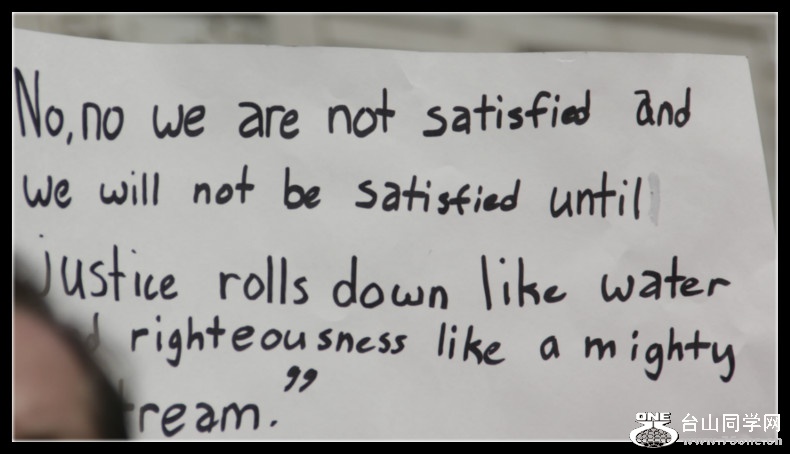 No, no we are not satisfied and
we will not be satisfied until
justice rolls down like water
righteousness like a mighty
tream.”
ONE
台山同学网